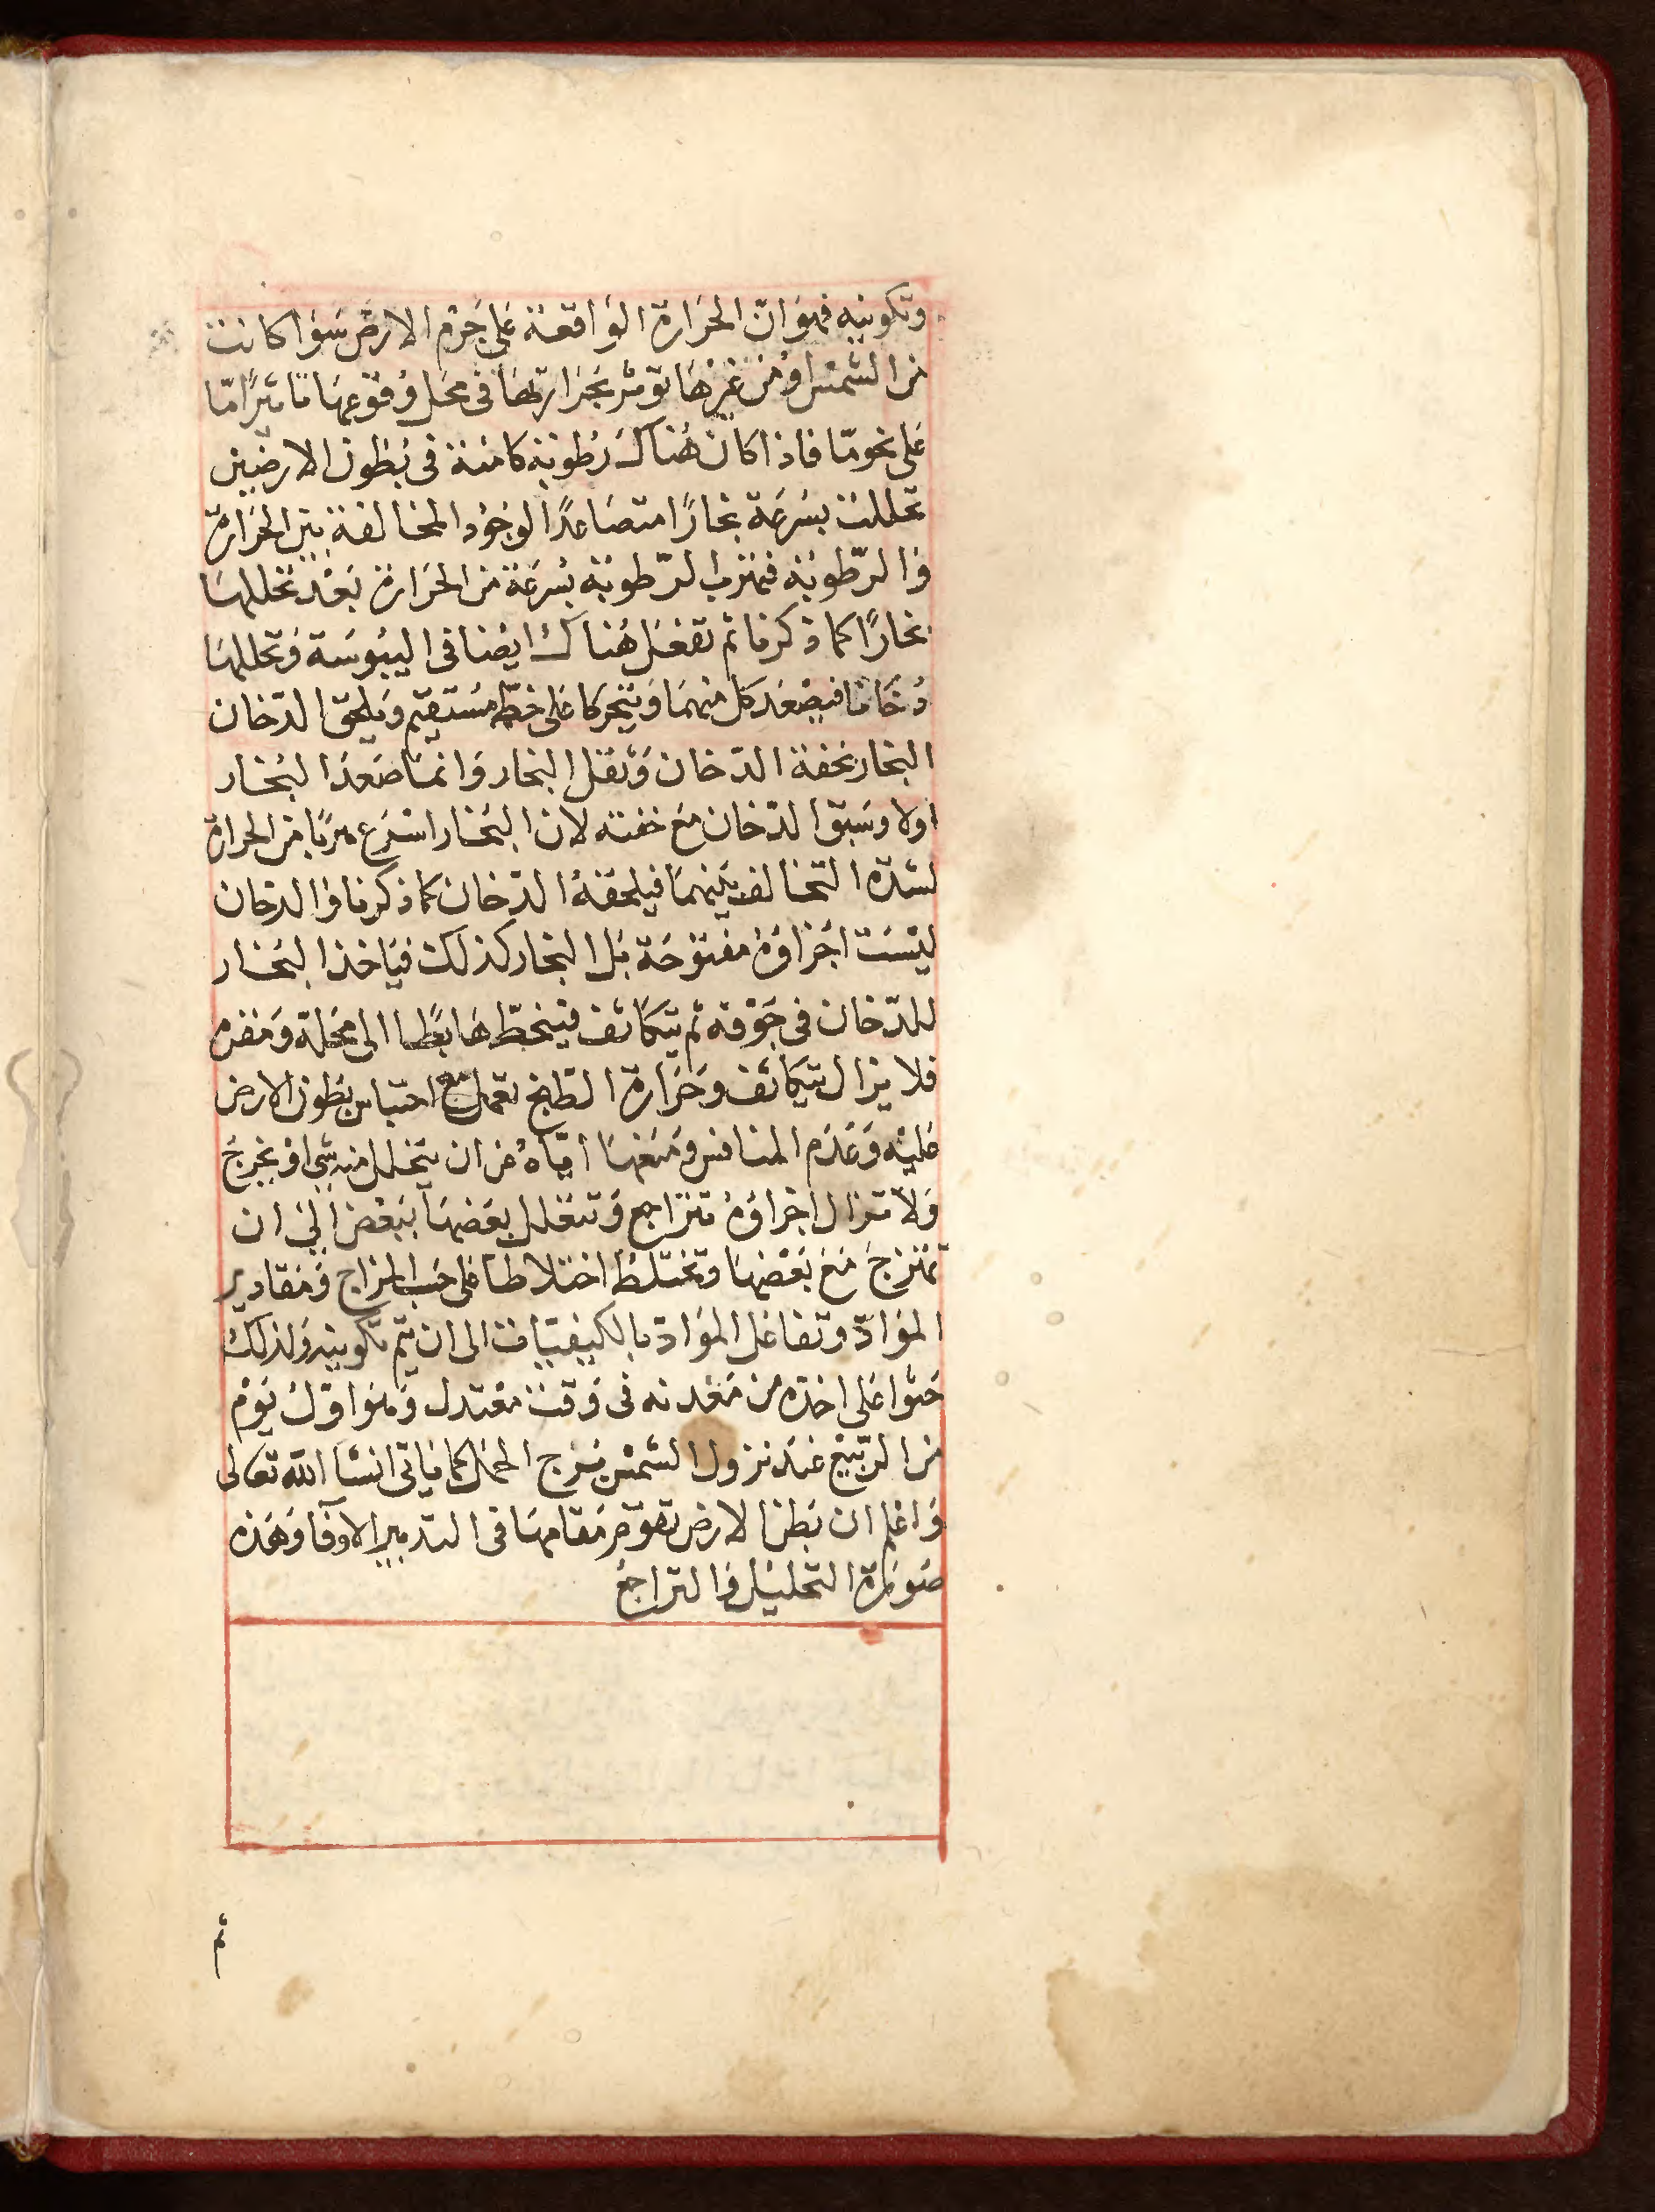 وتكوينه فهو ان الحرارة الواقعة على جرم الارض سوا كانت
من الشمس او من غيرها توثر بحرارتها فى محل وقوعها تاثيرًا مّا
على نحو مّا فاذا كان هناك رطوبة كامنة فى بطون الارضين
تحللت بسرعة بخارًا متصاعدًا لوجود المخالفة بين الحرارة
والرّطوبة فتهرب الرّطوبة بسرعة من الحرارة بعد تحللها
بخارًا كما ذكرنا ثم تفعل هناك ايضا فى اليبوسة وتحللها
دخانا فيصعد كل منهما ويتحركا على خطّ مستقيم ويلحق الدّخان
البخار بخفة الدّخان وثقل البخار وانما صعد البخار
اولا وسبق الدّخان مع خفته لان البخار اسرع هربًا من الحرارة
لشدّة التخالف بينهما فيلحقه الدّخان كما ذكرنا والدّخان
ليست اجزاوه مفتوحة بل البخار كذلك فياخذ البخار
للدّخان فى جوفه ثم يتكاثف فينحطّ هابطًا الى محلّه ومقره
فلا يزال يتكاثف وحرارة الطبخ تعمل مع احتباس بطون الارض
عليه وعدم المنافس ومنعها ايّاه من ان يتحلل منه شي او يخرج
ولا تزال اجزاوه تتراجع وتتغلل بعضها ببعض الى ان
تمتزج مع بعضها وتختلط اختلاطا على حسب المزاج ومقادير
الموادّ وتفاعل الموادّ بالكيفيّات الى ان يتم تكوينه ولذلك
حثوا على اخذه من معدنه فى وقت معتدل وهو اوّل يوم
من الرّبيع عند نزول الشمس برج الحمل كما ياتى انشا الله تعالى
واعلم ان بطن الارض تقوم مقامها فى التدبير الاوانى وهذه
صورة التحليل والتراجع
ثم